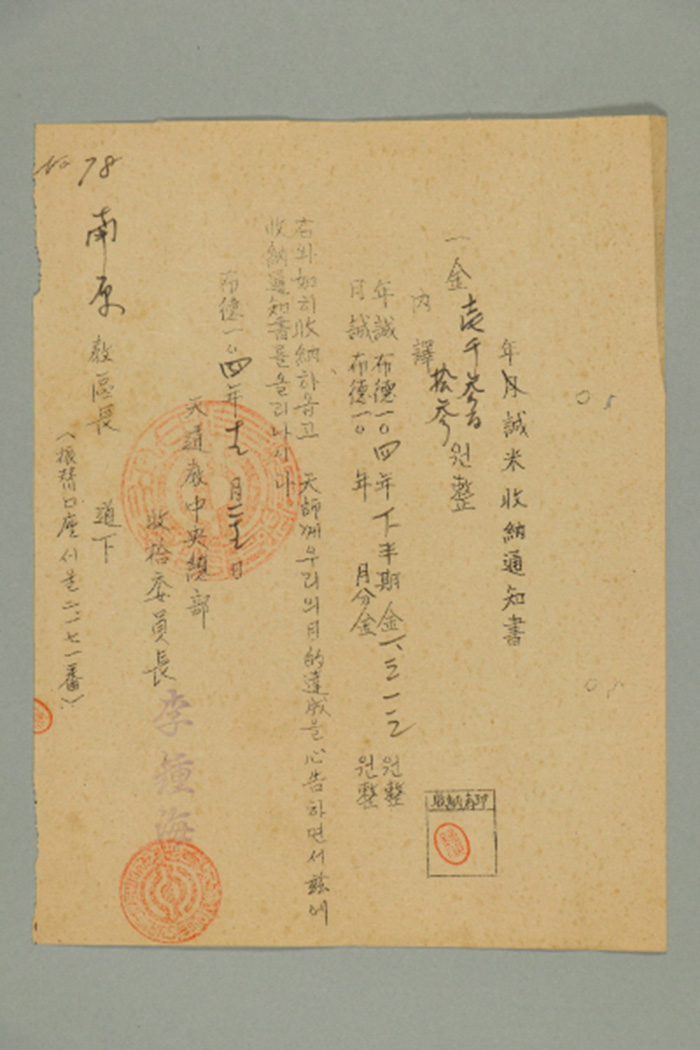 年月誠米收納通知書
一金壹千參百拾參원整
內譯
年誠布德一〇四年下半期金一、三一三원整
月誠布德一〇 年 月分金 원整
右와如히收納하옵고 天師께우리의目的達成을心告하면서玆에
收納通知書를올리나이다
布德一〇四年 月 日
天道敎中央總部
收拾委員長 李鍾海
南原敎區長 道下
(振替口座서울二二七一番)
No 78